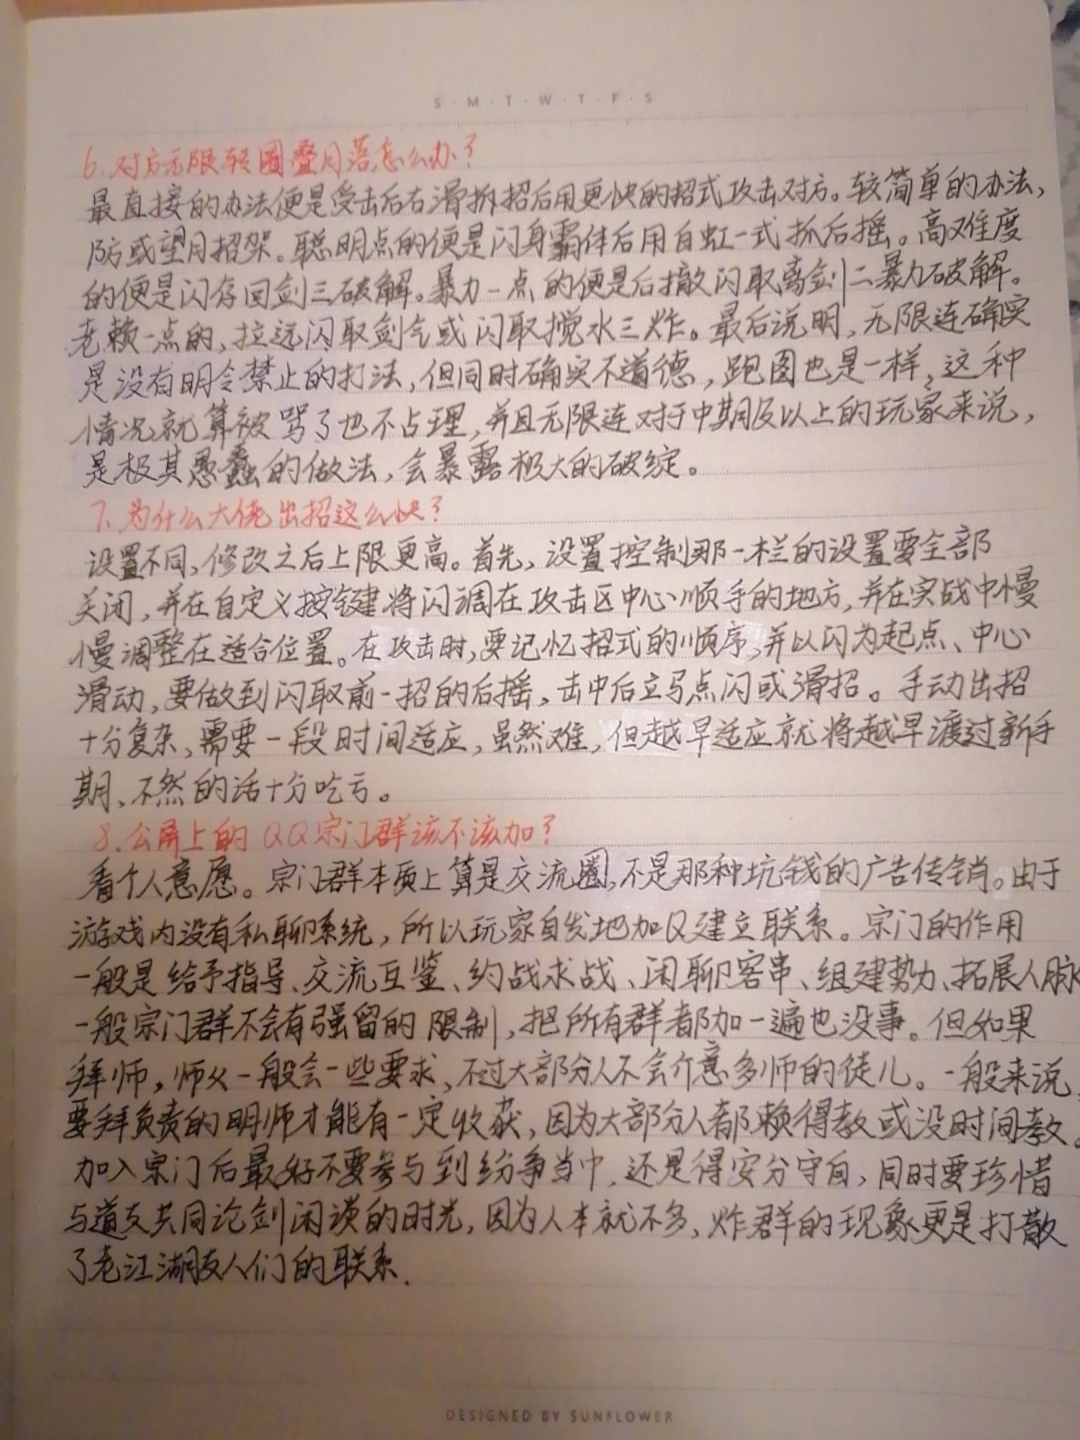 S·M·T·W·T·F·S
6.对方无限转圈叠月落怎么办?
最直接的办法便是受击后右滑拆招后用更快的招式攻击对方。较简单的办法,
防或望月招架。聪明点的便是闪身霸体后用白虹一式抓后摇。高难度
的便是闪存回剑三破解。暴力一点的便是后撤闪取离剑二暴力破解。
老赖一点的,拉远闪取剑气或闪取搅水三炸。最后说明,无限连确实
是没有明令禁止的打法,但同时确实不道德,跑图也是一样,这种
情况就算被骂了也不占理,并且无限连对于中期及以上的玩家来说,
是极其愚蠢的做法,会暴露极大的破绽。
7.为什么大佬出招这么快?
设置不同,修改之后上限更高。首先,设置控制那一栏的设置要全部
关闭,并在自定义按键将闪调在攻击区中心顺手的地方,并在实战中慢
慢调整在适合位置。在攻击时,要记忆招式的顺序,并以闪为起点、中心
滑动,要做到闪取前一招的后摇,击中后立马点闪或滑招。手动出招
十分复杂,需要一段时间适应,虽然难,但越早适应就将越早渡过新手
期,不然的话十分吃亏。
8.公屏上的QQ宗门群该不该加?
看个人意愿。宗门群本质上算是交流圈,不是那种坑钱的广告传销。由于
游戏内没有私聊系统,所以玩家自发地加Q建立联系。宗门的作用
一般是给予指导、交流互鉴、约战求战、闲聊客串、组建势力、拓展人脉
一般宗门群不会有强留的限制,把所有群都加一遍也没事。但如果
拜师,师父一般会一些要求,不过大部分人不会介意多师的徒儿。一般来说,
要拜负责的明师才能有一定收获,因为大部分人都赖得教或没时间教。
加入宗门后最好不要参与到纷争当中,还是得安分守自,同时要珍惜
与道友共同论剑闲谈的时光,因为人本就不多,炸群的现象更是打散
了老江湖友人们的联系.
DESIGNED BY SUNFLOWER